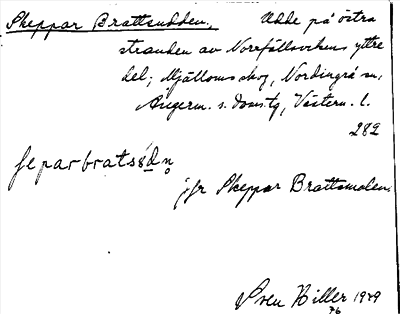 Skeppar Brattsudden. Udde på östra
stranden av Norrfällsvikens yttre
del; Mjälloms skog, Nordingrå sn,
Ångerm. s. doms:g, Västern. l.
282
jfr Skeppar Brattsmalen
Sven Hiller 1929